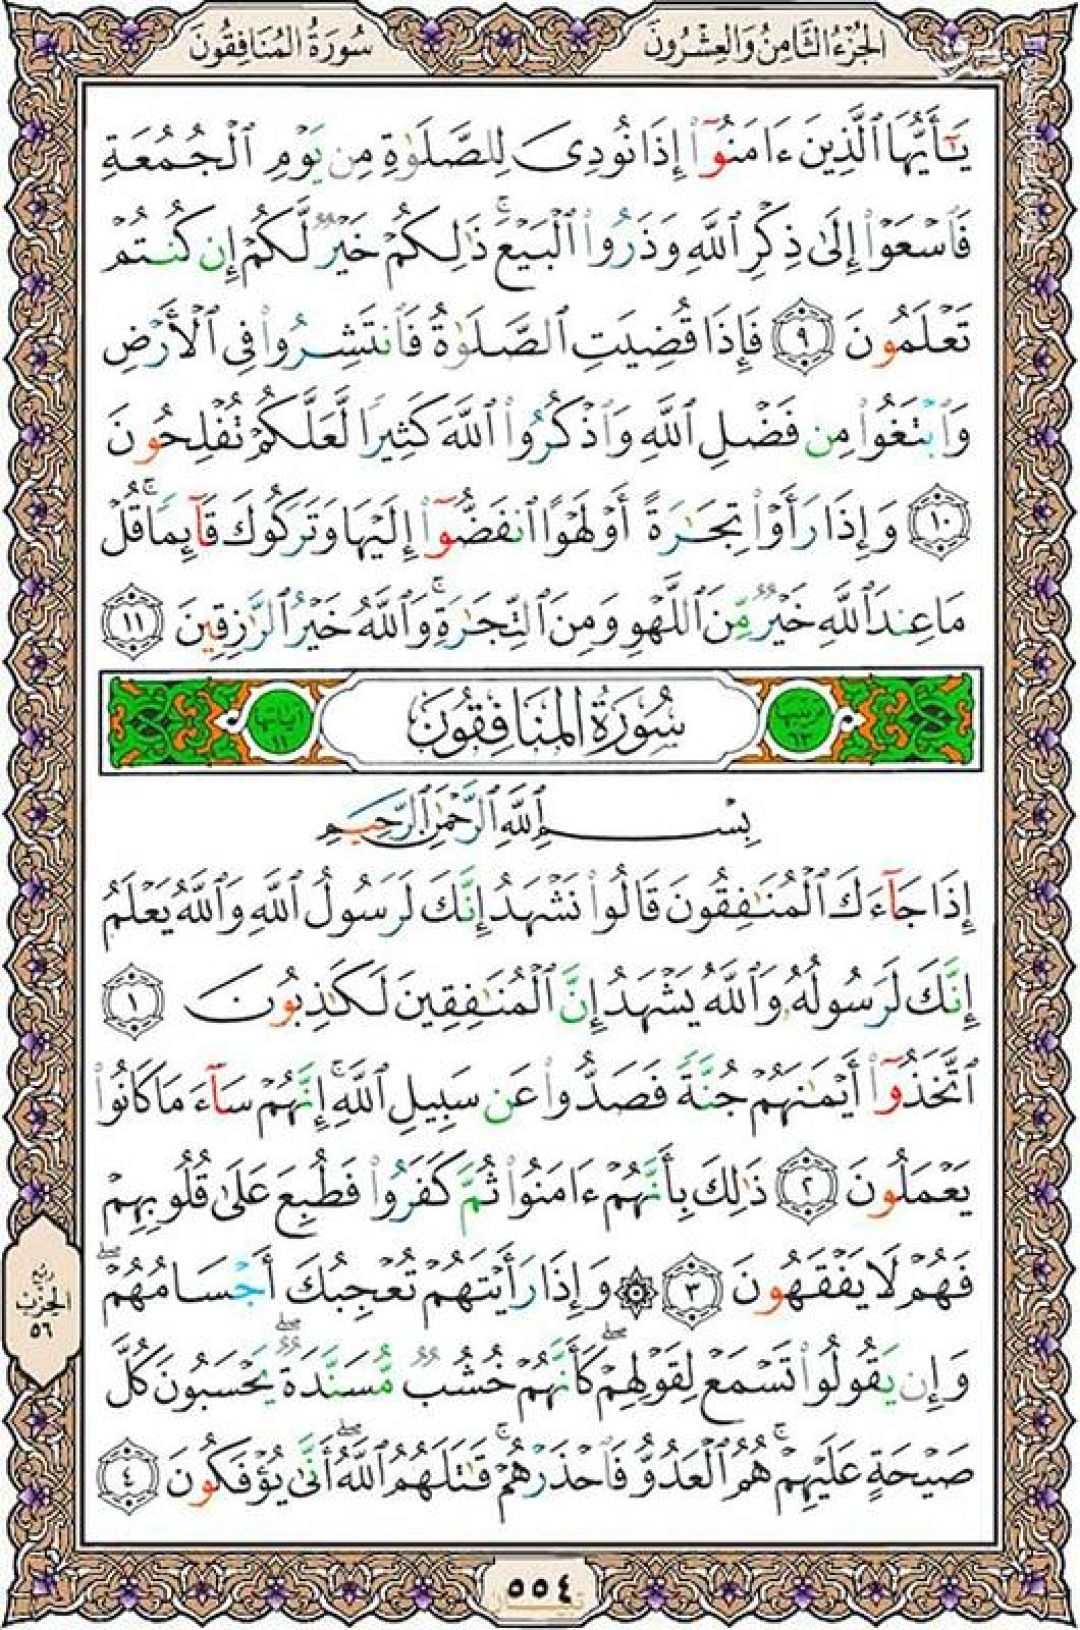 الجُزْءُ الثَّامِنُ وَالعِشْرُونَ
سُورَةُ المُنَافِقُونَ
يَٰٓأَيُّهَا ٱلَّذِينَ ءَامَنُوٓا۟ إِذَا نُودِىَ لِلصَّلَوٰةِ مِن يَوْمِ ٱلْجُمُعَةِ
فَٱسْعَوْا۟ إِلَىٰ ذِكْرِ ٱللَّهِ وَذَرُوا۟ ٱلْبَيْعَ ۚ ذَٰلِكُمْ خَيْرٌ لَّكُمْ إِن كُنتُمْ
تَعْلَمُونَ ٩ فَإِذَا قُضِيَتِ ٱلصَّلَوٰةُ فَٱنتَشِرُوا۟ فِى ٱلْأَرْضِ
وَٱبْتَغُوا۟ مِن فَضْلِ ٱللَّهِ وَٱذْكُرُوا۟ ٱللَّهَ كَثِيرًا لَّعَلَّكُمْ تُفْلِحُونَ
١٠ وَإِذَا رَأَوْا۟ تِجَٰرَةً أَوْ لَهْوًا ٱنفَضُّوٓا۟ إِلَيْهَا وَتَرَكُوكَ قَآئِمًا ۚ قُلْ
مَا عِندَ ٱللَّهِ خَيْرٌ مِّنَ ٱللَّهْوِ وَمِنَ ٱلتِّجَٰرَةِ ۚ وَٱللَّهُ خَيْرُ ٱلرَّٰزِقِينَ ١١
ترتيبها ٦٣ سُورَةُ المُنَافِقُونَ آياتها ١١
بِسْمِ ٱللَّهِ ٱلرَّحْمَٰنِ ٱلرَّحِيمِ
إِذَا جَآءَكَ ٱلْمُنَٰفِقُونَ قَالُوا۟ نَشْهَدُ إِنَّكَ لَرَسُولُ ٱللَّهِ وَٱللَّهُ يَعْلَمُ
إِنَّكَ لَرَسُولُهُۥ وَٱللَّهُ يَشْهَدُ إِنَّ ٱلْمُنَٰفِقِينَ لَكَٰذِبُونَ ١
ٱتَّخَذُوٓا۟ أَيْمَٰنَهُمْ جُنَّةً فَصَدُّوا۟ عَن سَبِيلِ ٱللَّهِ ۚ إِنَّهُمْ سَآءَ مَا كَانُوا۟
يَعْمَلُونَ ٢ ذَٰلِكَ بِأَنَّهُمْ ءَامَنُوا۟ ثُمَّ كَفَرُوا۟ فَطُبِعَ عَلَىٰ قُلُوبِهِمْ
فَهُمْ لَا يَفْقَهُونَ ٣ ۞ وَإِذَا رَأَيْتَهُمْ تُعْجِبُكَ أَجْسَامُهُمْ ۖ
وَإِن يَقُولُوا۟ تَسْمَعْ لِقَوْلِهِمْ ۖ كَأَنَّهُمْ خُشُبٌ مُّسَنَّدَةٌ ۖ يَحْسَبُونَ كُلَّ
صَيْحَةٍ عَلَيْهِمْ ۚ هُمُ ٱلْعَدُوُّ فَٱحْذَرْهُمْ ۚ قَٰتَلَهُمُ ٱللَّهُ ۖ أَنَّىٰ يُؤْفَكُونَ ٤
ربع
الحزب
٥٦
٥٥٤